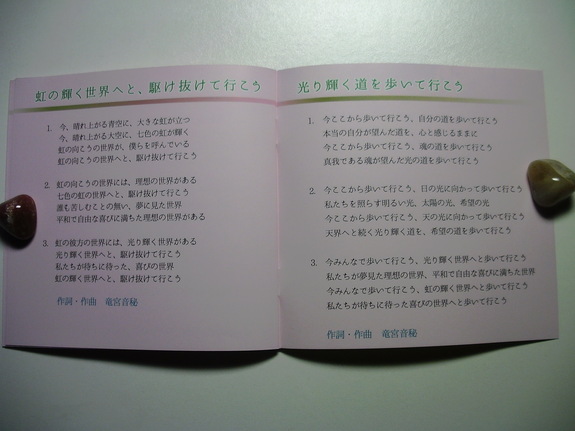 虹の輝く世界へと、駆け抜けて行こう
1. 今、晴れ上がる青空に、大きな虹が立つ
今、晴れ上がる大空に、七色の虹が輝く
虹の向こうの世界が、僕らを呼んでいる
虹の向こうの世界へと、駆け抜けて行こう
2. 虹の向こうの世界には、理想の世界がある
七色の虹の世界へと、駆け抜けて行こう
誰も苦しむことの無い、夢に見た世界
平和で自由な喜びに満ちた理想の世界がある
3. 虹の彼方の世界には、光り輝く世界がある
光り輝く世界へと、駆け抜けて行こう
私たちが待ちに待った、喜びの世界
虹の輝く世界へと、駆け抜けて行こう
作詞・作曲 竜宮音秘
光り輝く道を歩いて行こう
1. 今ここから歩いて行こう、自分の道を歩いて行こう
本当の自分が望んだ道を、心と感じるままに
今ここから歩いて行こう、魂の道を歩いて行こう
真我である魂が望んだ光の道を歩いて行こう
2. 今ここから歩いて行こう、日の光に向かって歩いて行こう
私たちを照らす明るい光、太陽の光、希望の光
今ここから歩いて行こう、天の光に向かって歩いて行こう
天界へと続く光り輝く道を、希望の道を歩いて行こう
3. 今みんなで歩いて行こう、光り輝く世界へと歩いて行こう
私たちが夢見た理想の世界、平和で自由な喜びに満ちた世界
今みんなで歩いて行こう、虹の輝く世界へと歩いて行こう
私たちが待ちに待った喜びの世界へと歩いて行こう
作詞・作曲 竜宮音秘